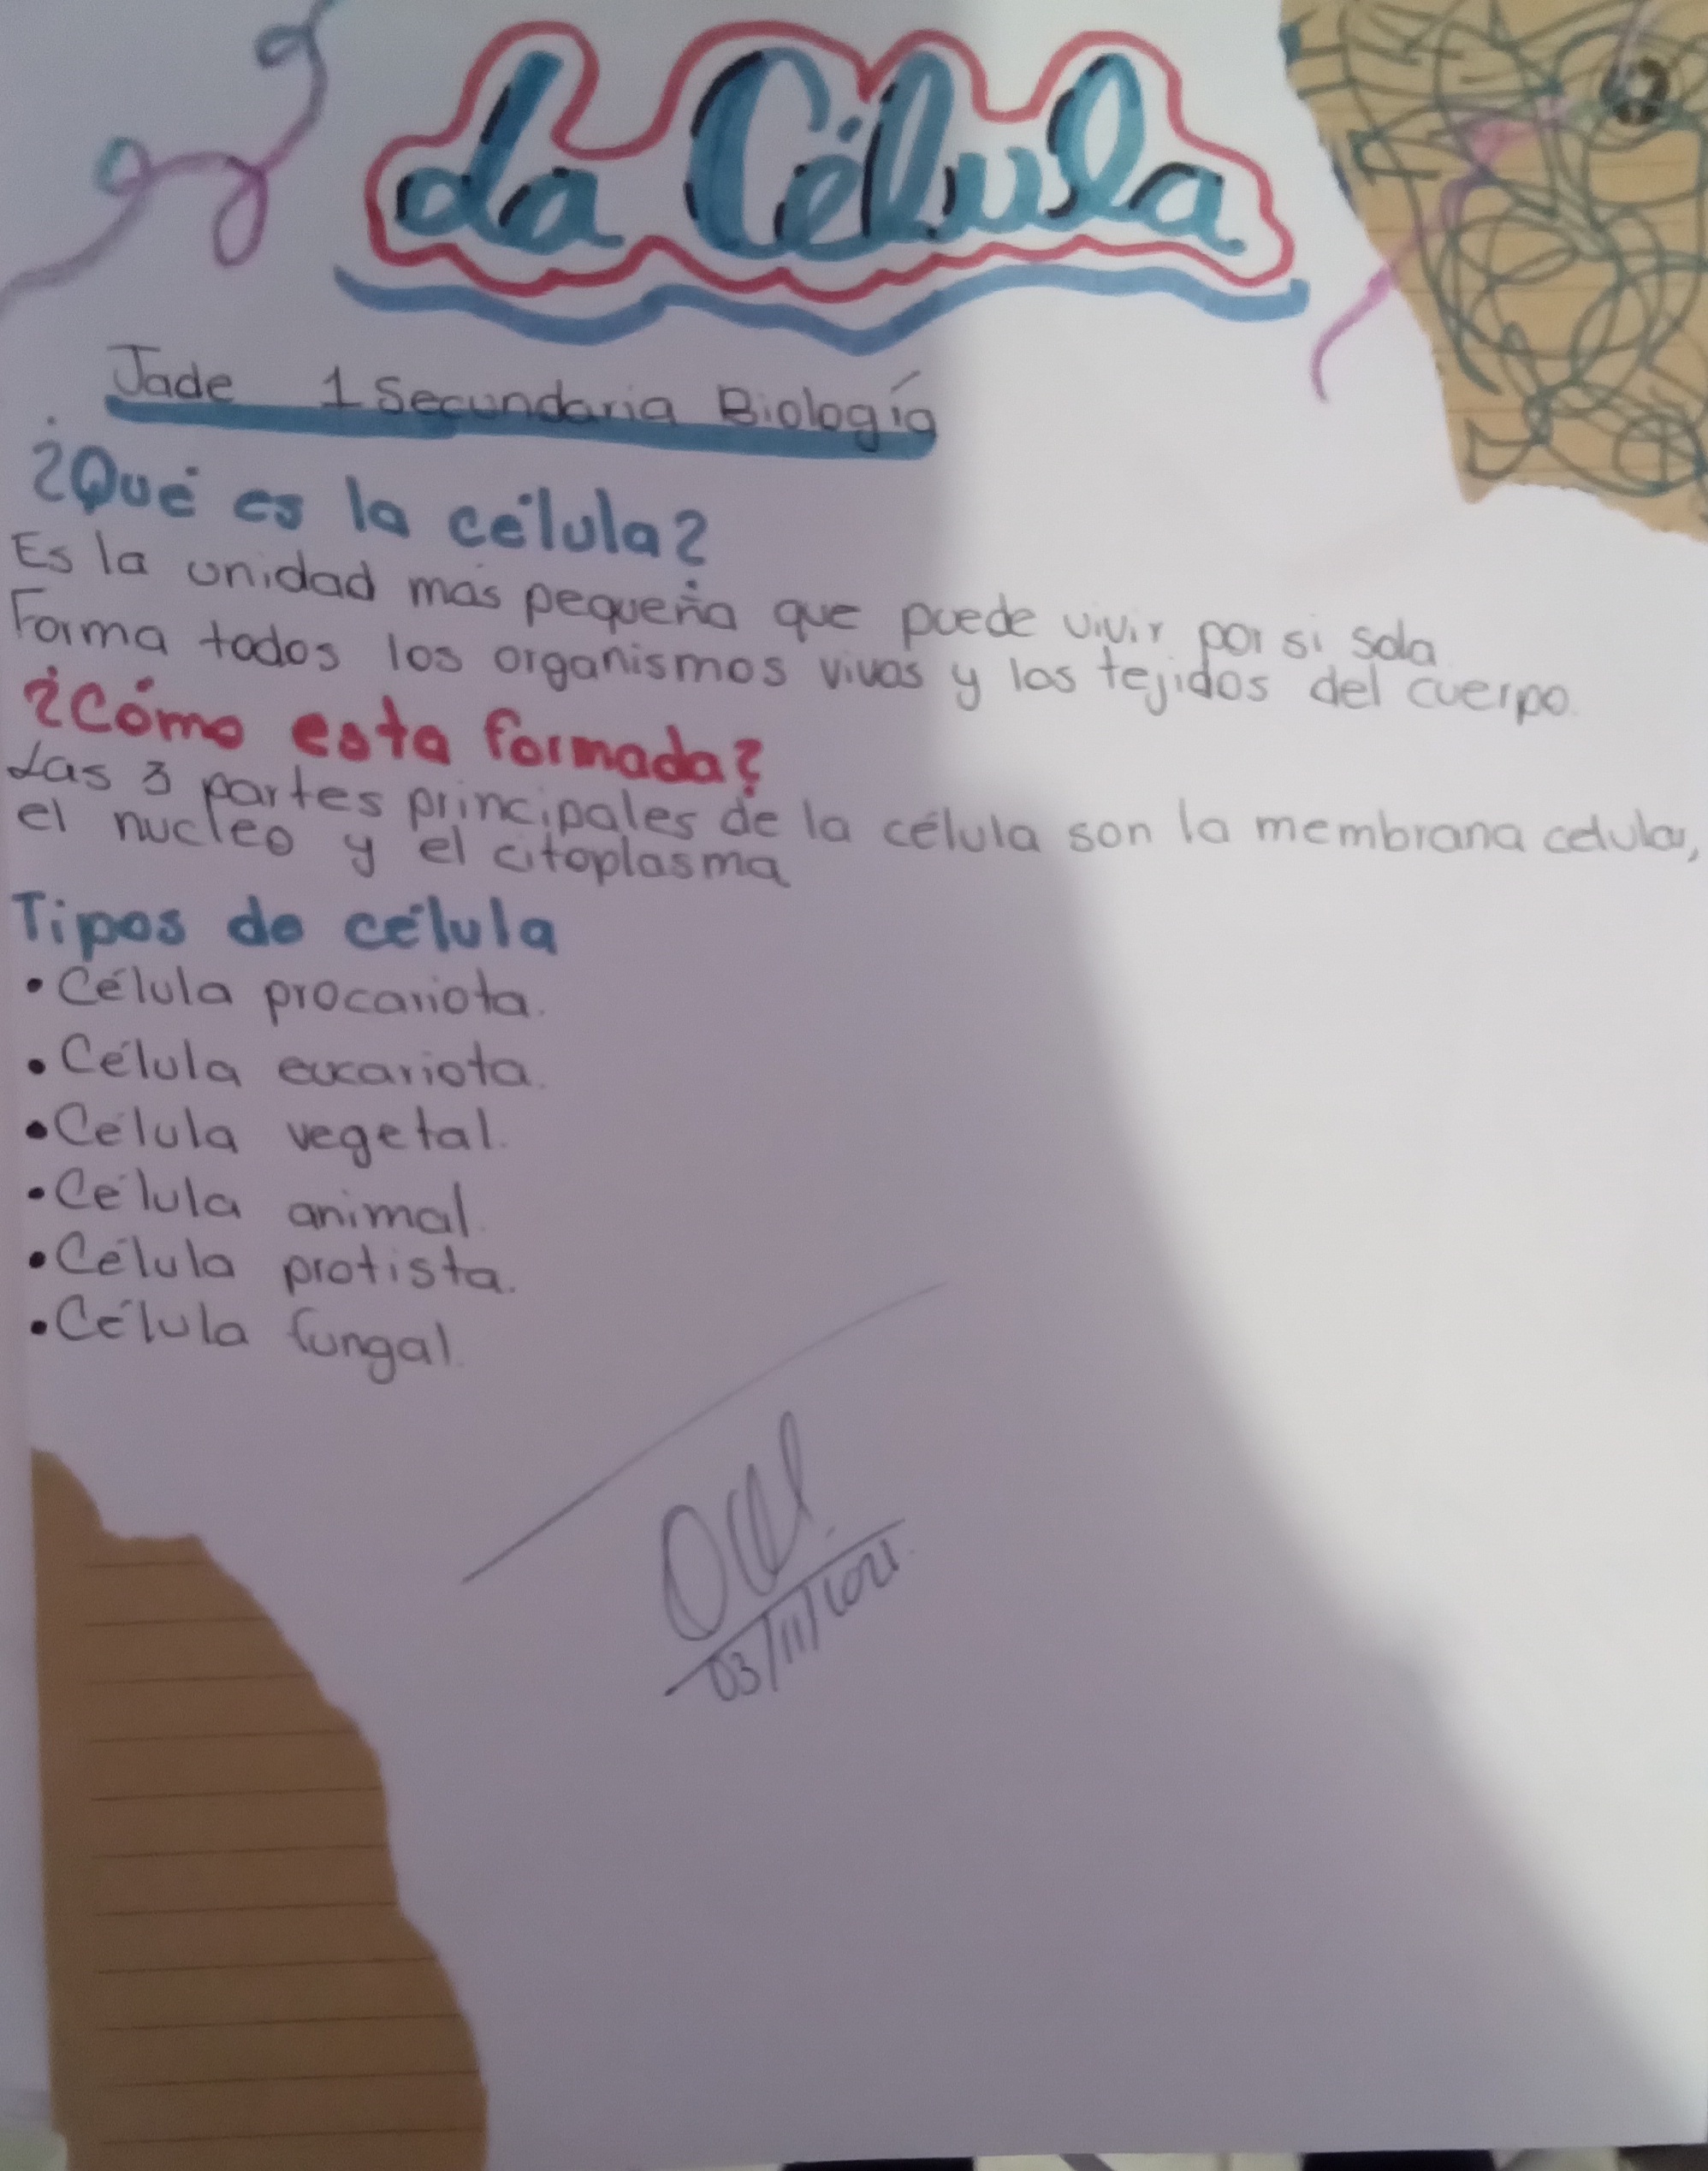 La Célula
Jade 1 Secundaria Biología
¿Qué es la célula?
Es la unidad más pequeña que puede vivir por si sola
Forma todos los organismos vivos y los tejidos del cuerpo.
¿Cómo esta formada?
Las 3 partes principales de la célula son la membrana celular,
el nucleo y el citoplasma
Tipos de célula
• Célula procariota.
• Célula eucariota.
• Célula vegetal.
• Célula animal.
• Célula protista.
• Célula fungal.
03/11/2021.